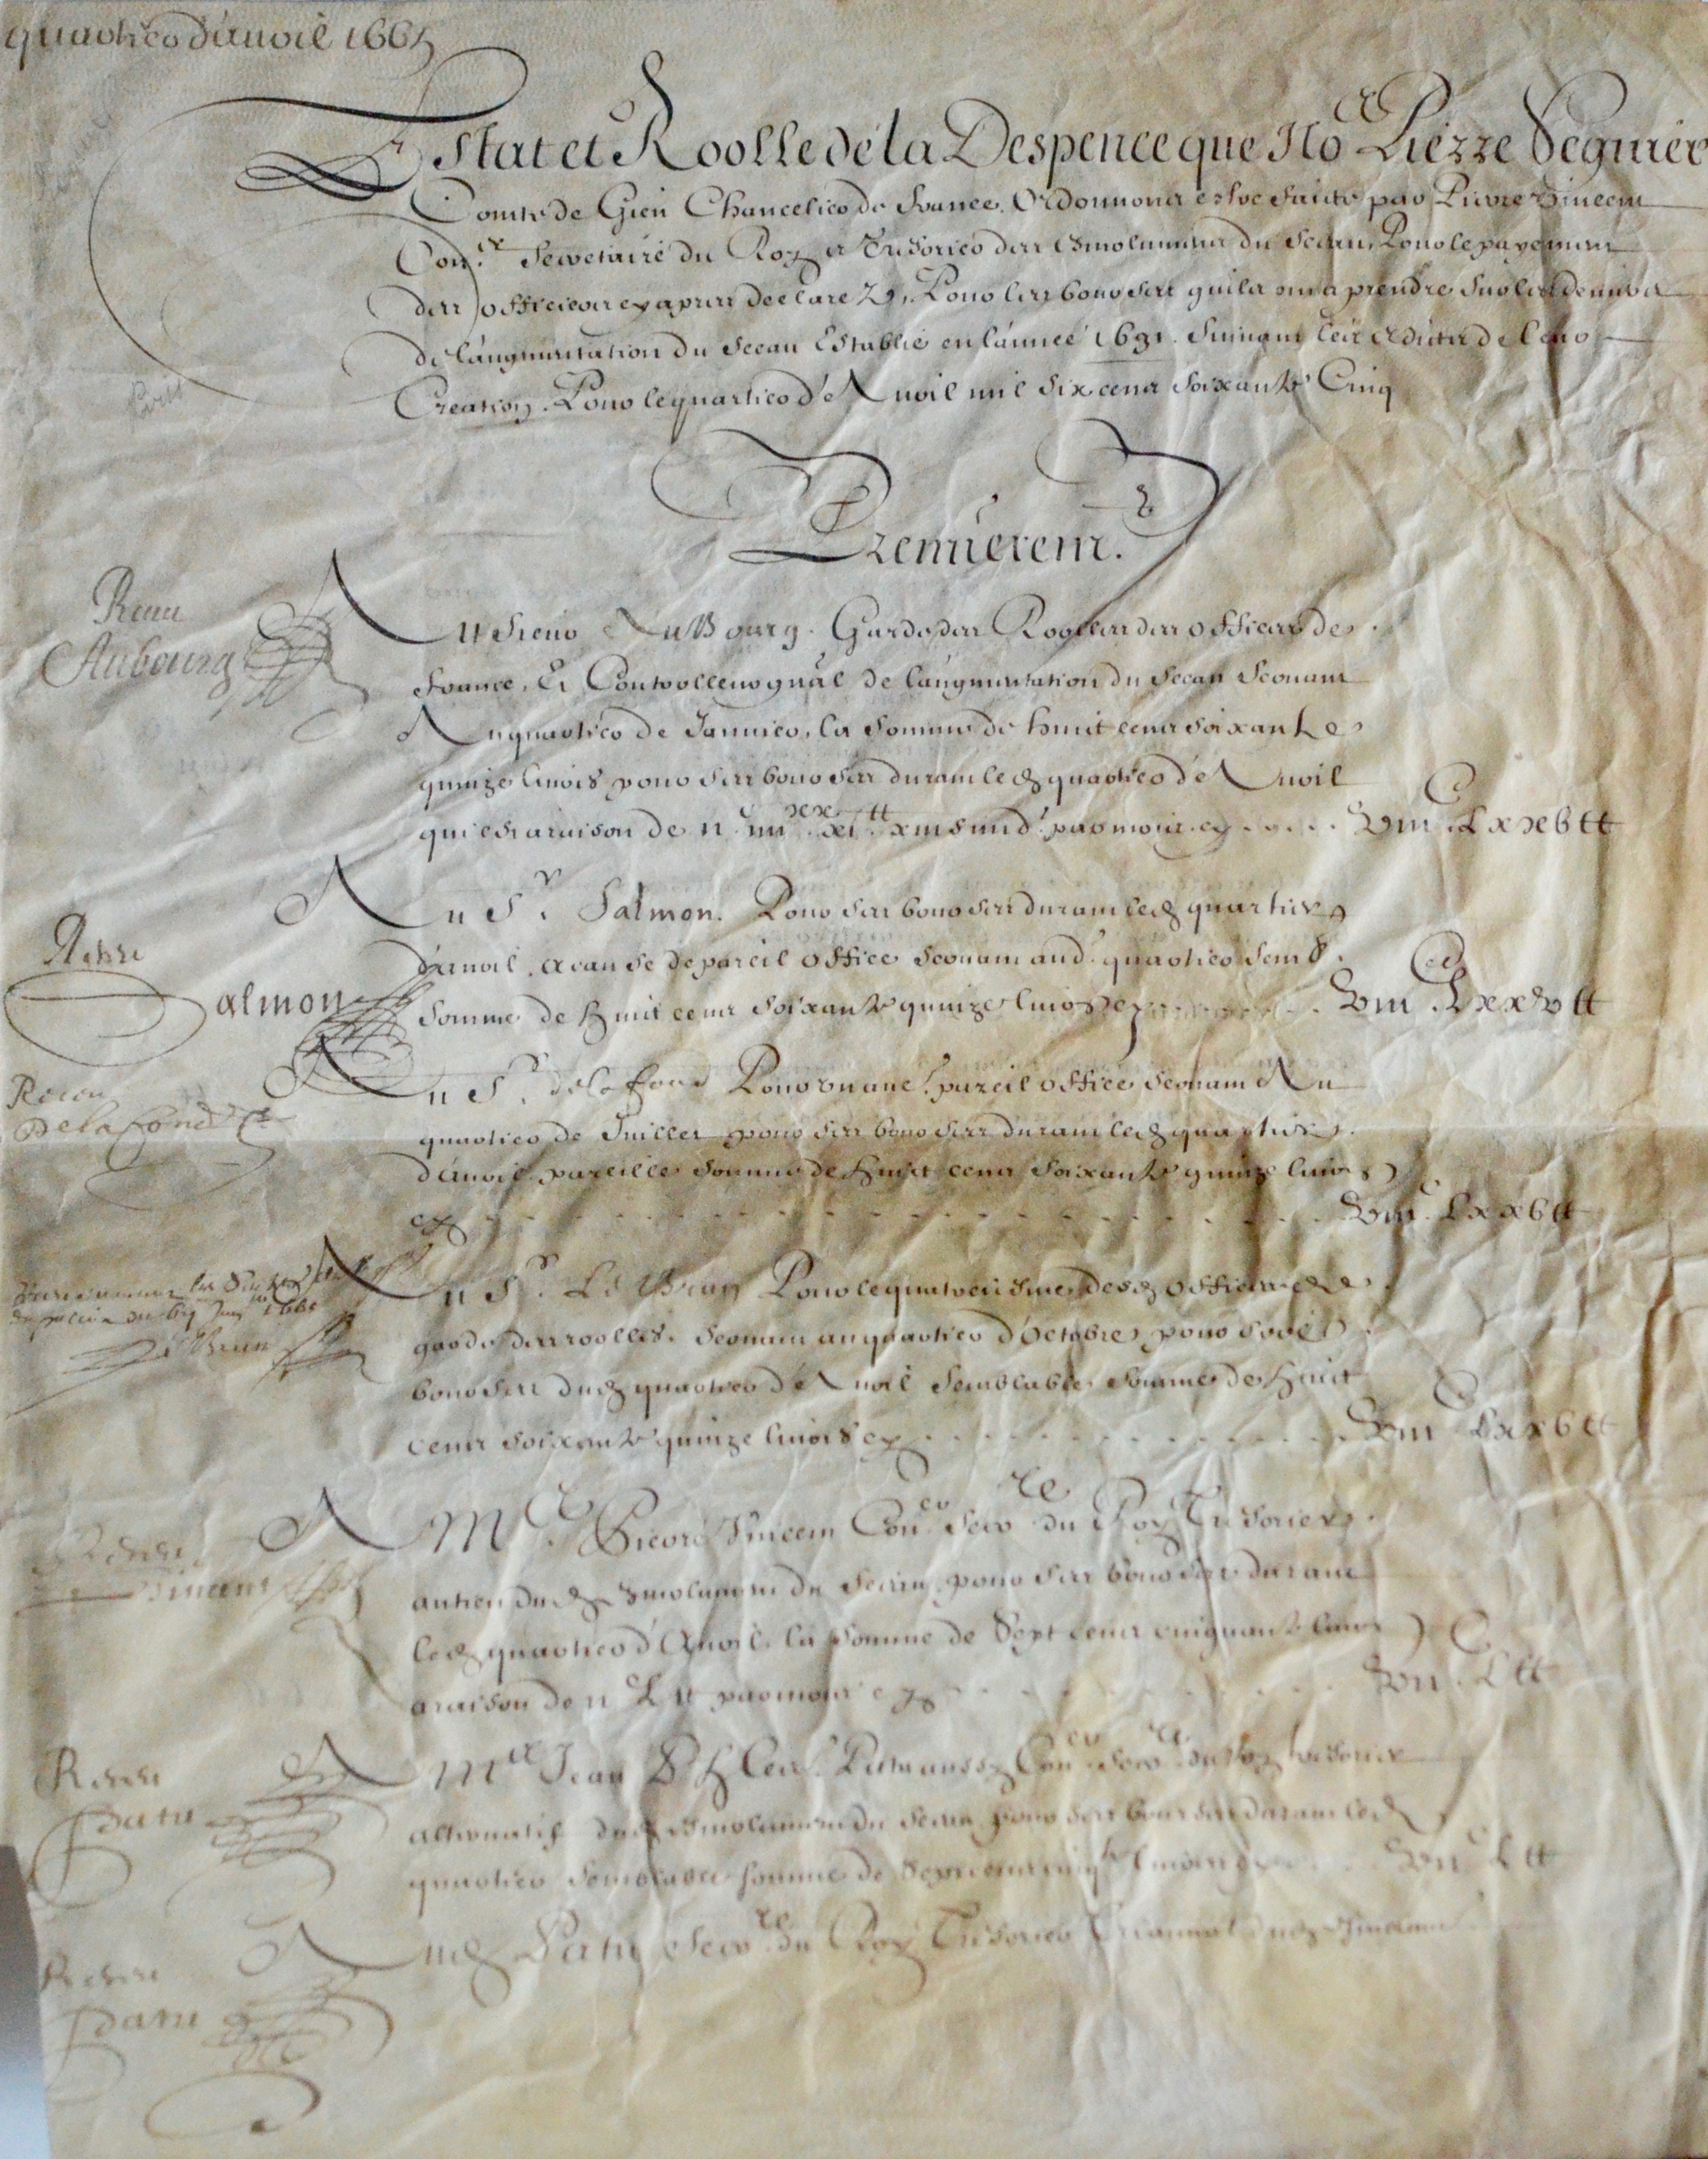 quartier d'avril 1665
Estat et Roolle de la Despence que No.s Pierre Seguier
Comte de Gien Chancelier de France. Ordonnons estre faicte par Pierre Vincent
Con.er Secretaire du Roy et Tresorier des Emolumens du Sceau, Pour le payement
des officiers cy apres declarez, Pour les bourses quils ont a prendre sur les deniers
de l'augmentation du Sceau Establie en l'année 1631. Suivant les Edicts de leur
Creation. Pour le quartier d'Avril mil six cens soixante Cinq
Premierem.t
Receu
Aubourg
Au Sieur Aubourg. Garde des Roolles des officiers de
France, Et Controlleur gnâl de l'augmentation du Sceau Servant
Au quartier de Janvier, la somme de huit cens soixante
quinze livres pour ses bourses durant led. quartier d'Avril
qui est a raison de II.c IIII.xx XI.tt XIII s IIII d. par mois cy .... VIII.c LXXV tt
Receu
Salmon
Au S.r Salmon. Pour ses bourses durant led. quartier
d'avril, a cause de pareil office servant aud. quartier
somme de huit cens soixante quinze livres cy .... VIII.c LXXV tt
Receu
Delafond
Au S.r delafond Pour un aut.e pareil office servant Au
quartier de Juillet pour ses bourses durant led. quartier
d'avril pareille somme de huit cens soixante quinze livres
cy .... VIII.c LXXV tt
Le Brun
Au S.r Le Brun Pour le quatreiesme desd. offices de
garde des roolles. Servant au quartier d'Octobre pour ses
bourses dud. quartier d'Avril semblable somme de huit
cens soixante quinze livres cy .... VIII.c LXXV tt
Receu
Vincent
A M.e Pierre Vincent Con.er Secr.re du Roy Tresorier
antien dud. Emolument du Sceau pour ses bourses durant
led. quartier d'Avril la somme de Sept cens cinquante livres
a raison de II.c L tt par mois cy .... VII.c L tt
Receu
Patu
A M.e Jean Con.er Secr.re du Roy tresorier
alternatif dud. Emolument du Sceau pour ses bourses durant led.
quartier semblable somme de Sept cens livres cy .... VII.c L tt
Receu
Patu
Aud. Patu Secr.re du Roy Tresorier Triennal